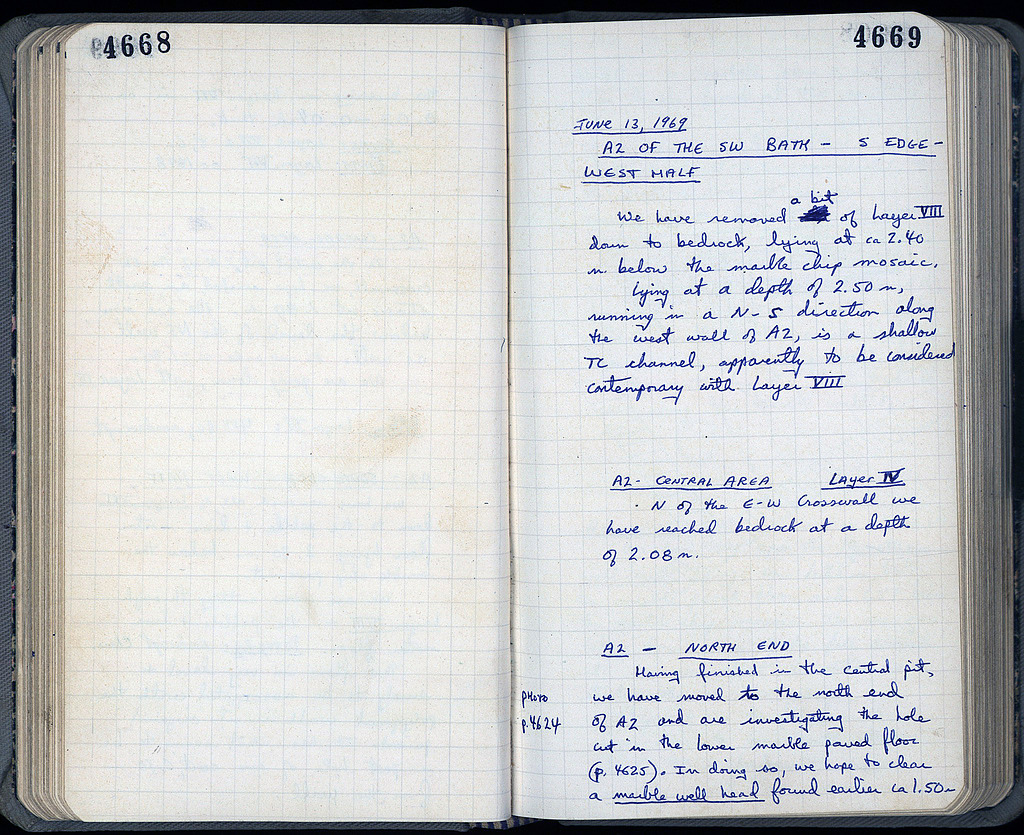 4668
4669
JUNE 13, 1969
A2 OF THE SW BATH - S EDGE -
WEST HALF
a bit
We have removed of Layer VIII
down to bedrock, lying at ca 2.40
m. below the marble chip mosaic.
Lying at a depth of 2.50 m,
running in a N-S direction along
the west wall of A2, is a shallow
TC channel, apparently to be considered
contemporary with Layer VIII
A2- CENTRAL AREA Layer IV
N of the E-W Crosswall we
have reached bedrock at a depth
of 2.08 m.
A2 - NORTH END
Having finished in the central pit,
PHOTO we have moved to the north end
p.4624 of A2 and are investigating the hole
cut in the lower marble paved floor
(p. 4625). In doing so, we hope to clear
a marble well head found earlier ca 1.50m